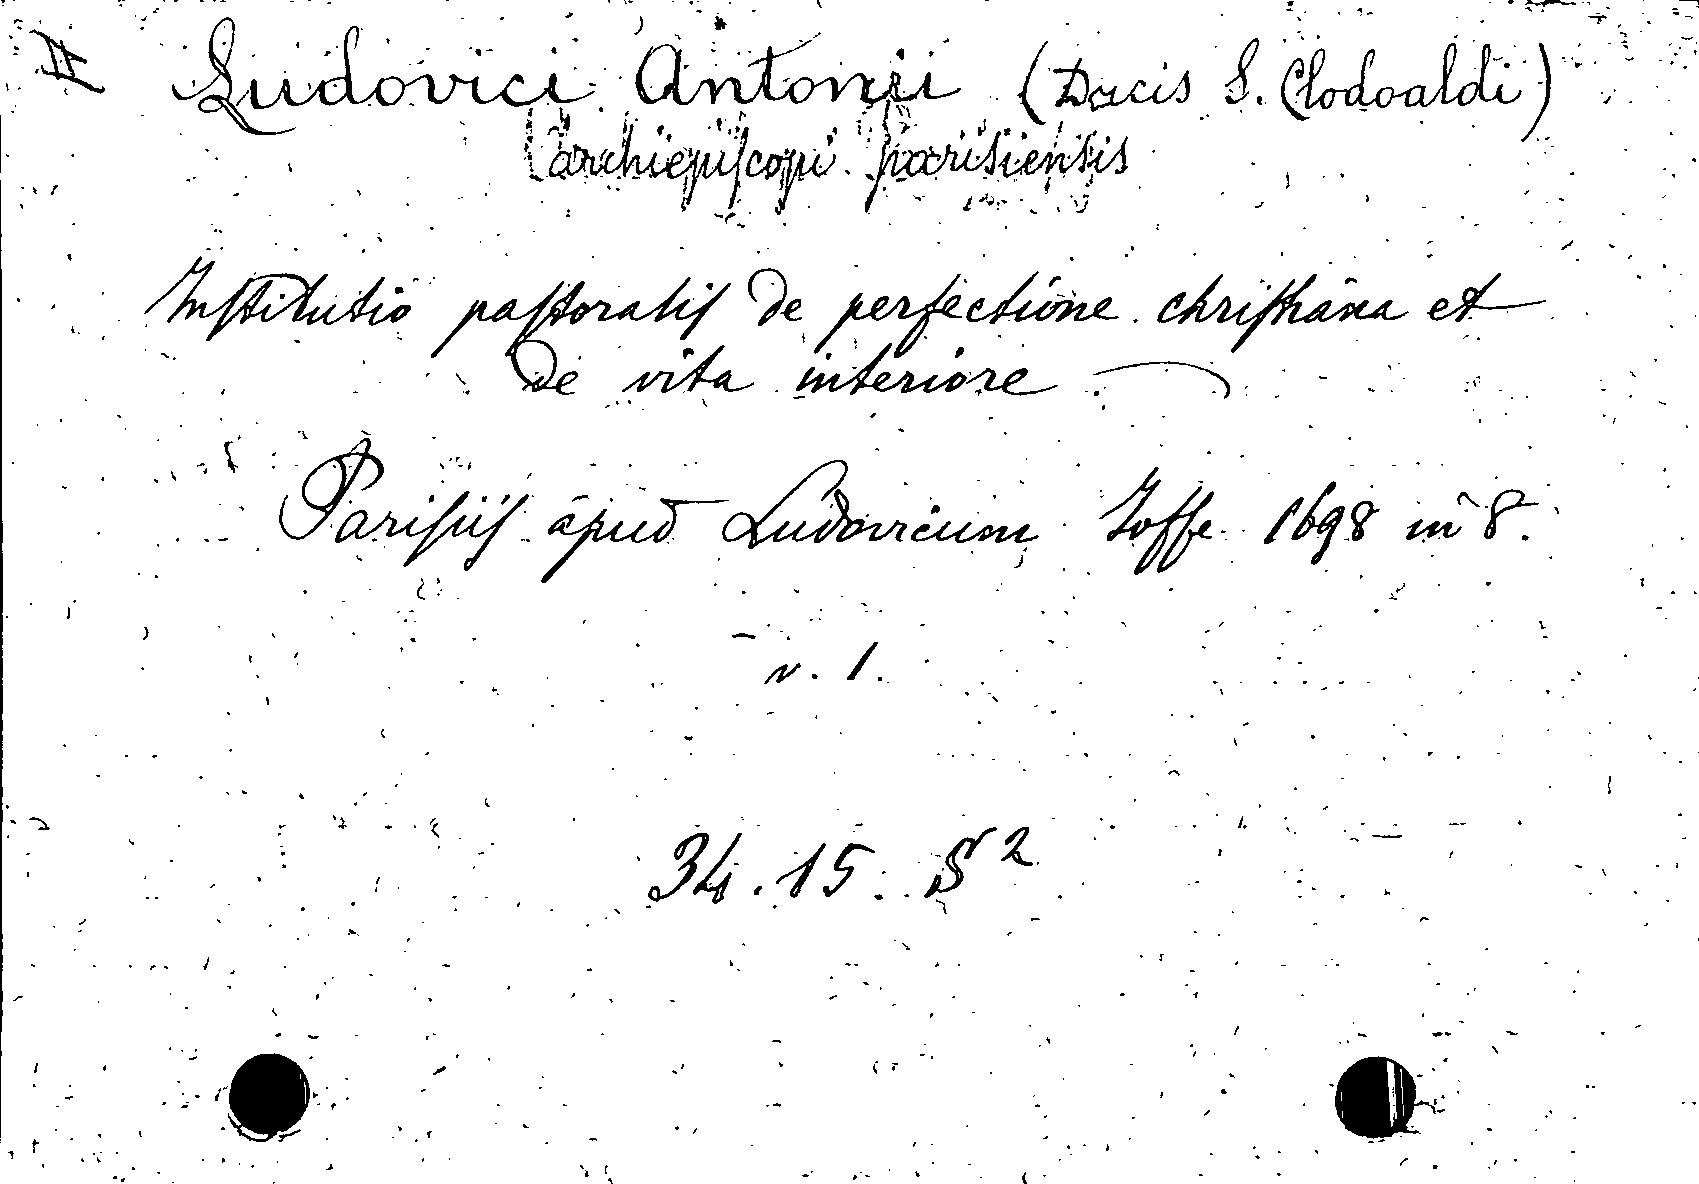 II Ludovici Antonii (Ducis S. Clodoaldi)
archiepiſcopi parisiensis
Inſtitutio paſtoraliſ de perfectione chriſtiana et
de vita interiore
Pariſiiſ apud Ludovicum Joſſe 1698 in 8.
v. 1.
34.15. S²